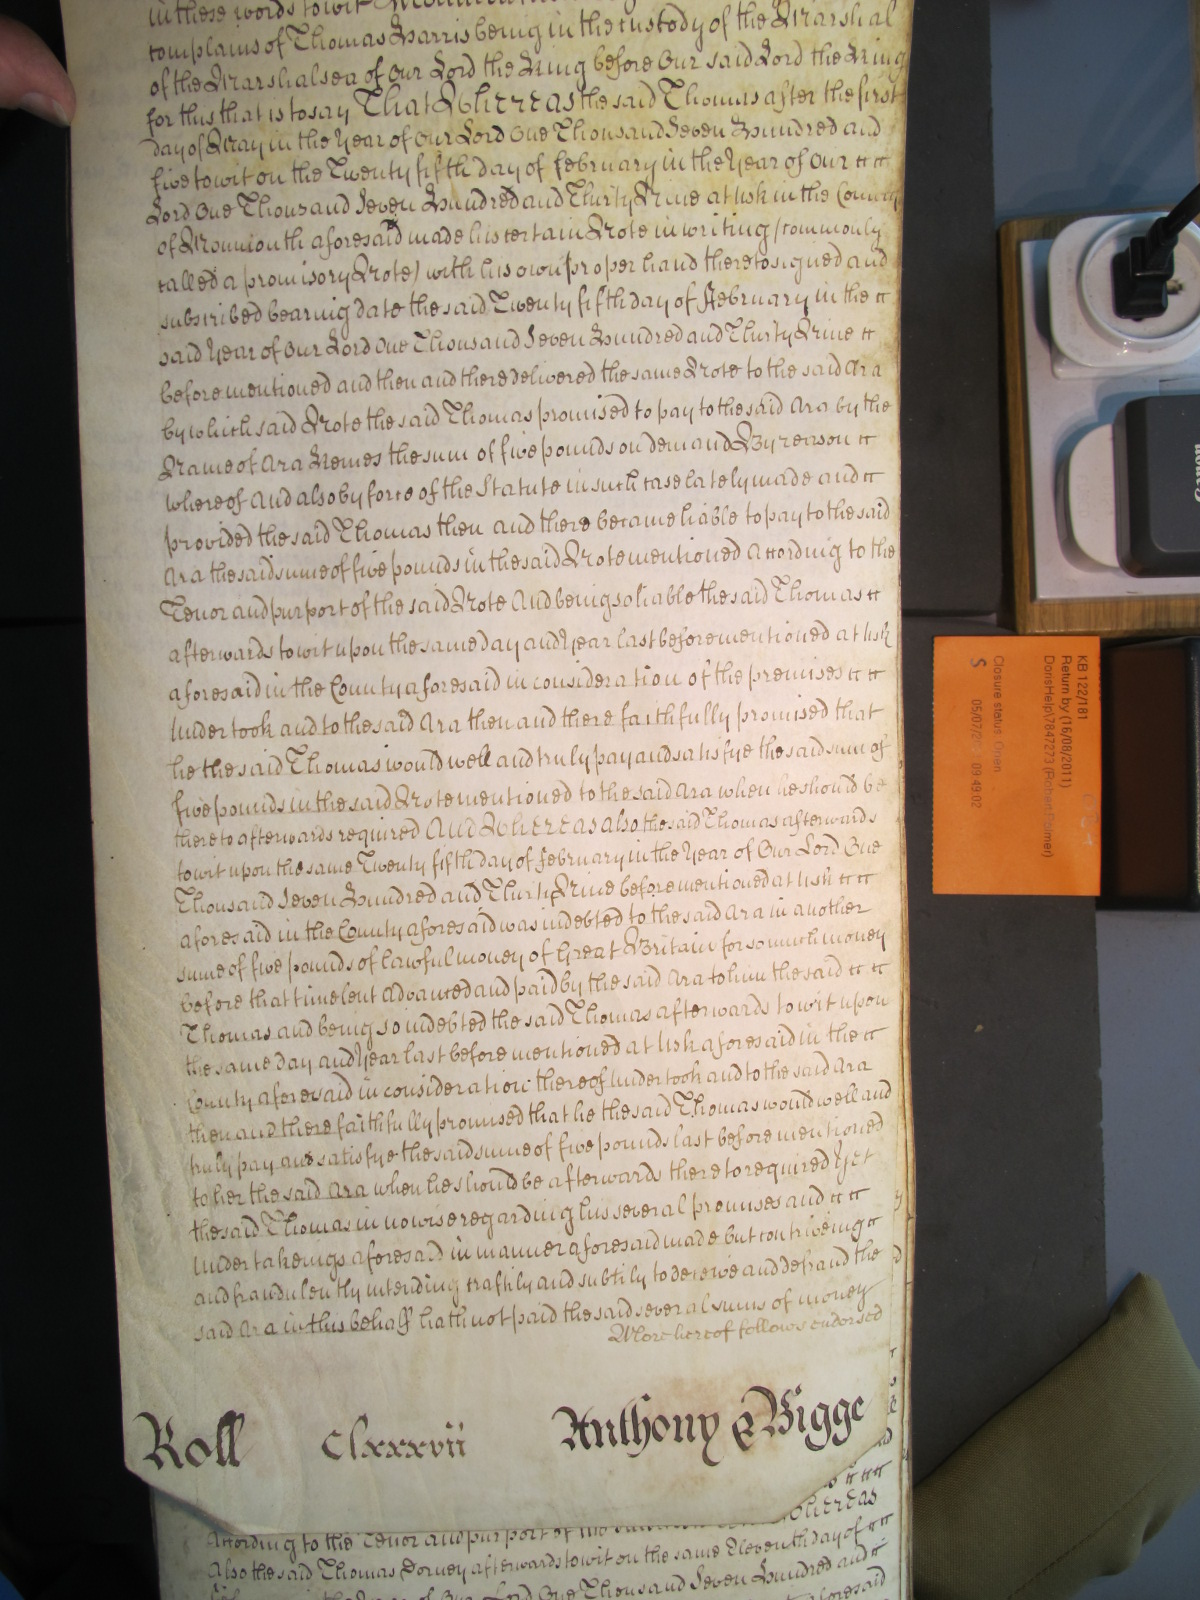 in these words towit
complains of Thomas Harris being in the custody of the Marshal
of the Marshalsea of Our Lord the King before Our said Lord the King
for this that is to say That Whereas the said Thomas after the first
day of May in the Year of Our Lord One Thousand Seven Hundred and
five towit on the Twenty fifth day of February in the Year of Our
Lord One Thousand Seven Hundred and Thirty Nine at Usk in the County
of Monmouth aforesaid made his certain Note in writing (commonly
called a promisory Note) with his own proper hand thereto signed and
subscribed bearing date the said Twenty fifth day of February in the
said Year of Our Lord One Thousand Seven Hundred and Thirty Nine
before mentioned and then and there delivered the same Note to the said Ara
by which said Note the said Thomas promised to pay to the said Ara by the
Name of Ara Nemes the sum of five pounds on demand By reason
whereof And also by force of the Statute in such case lately made and
provided the said Thomas then and there became liable to pay to the said
Ara the said sume of five pounds in the said Note mentioned According to the
Tenor and purport of the said Note And being so liable the said Thomas
afterwards towit upon the same day and Year last before mentioned at Usk
aforesaid in the County aforesaid in consideration of the premises
Undertook and to the said Ara then and there faithfully promised that
he the said Thomas would well and truly pay and satisfye the said sum of
five pounds in the said Note mentioned to the said Ara when he should be
thereto afterwards required And Whereas also the said Thomas afterwards
towit upon the same Twenty fifth day of February in the Year of Our Lord One
Thousand Seven Hundred and Thirty Nine before mentioned at Usk
aforesaid in the County aforesaid was indebted to the said Ara in another
sume of five pounds of lawful money of Great Britain for so much money
before that time lent Advanced and paid by the said Ara to him the said
Thomas and being so indebted the said Thomas afterwards towit upon
the same day and Year last before mentioned at Usk aforesaid in the
County aforesaid in consideration thereof Undertook and to the said Ara
then and there faithfully promised that he the said Thomas would well and
truly pay and satisfye the said sume of five pounds last before mentioned
to her the said Ara when he should be afterwards thereto required Yet
the said Thomas in no wise regarding his several promises and
Undertakeings aforesaid in manner aforesaid made but contriveing
and fraudulently intending craftily and subtily to deceive and defraud the
said Ara in this behalf hath not paid the said several sums of money
More hereof follows endorsed
Roll Clxxxvii Anthony & Bigge
According to the Tenor and purport of
Whereas
Also the said Thomas Dorney afterwards towit on the same Eleventh day of
of Our Lord One Thousand Seven Hundred and
aforesaid
KB 122/181
Return by (16/08/2011)
DorisHelp\7847273 (Robert Palmer)
Closure status Open
S 05/07/20 09:49:02
Canon